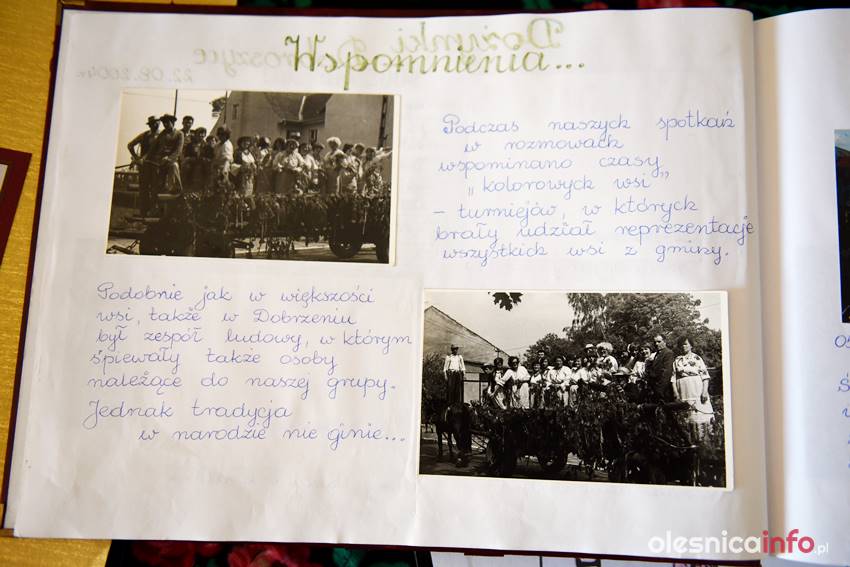 Wspomnienia...
Podczas naszych spotkań
w rozmowach
wspominano czasy
„kolorowych wsi”
– turniejów, w których
brały udział reprezentacje
wszystkich wsi z gminy.
Podobnie jak w większości
wsi, także w Dobrzeniu
był zespół ludowy, w którym
śpiewały także osoby
należące do naszej grupy.
Jednak tradycja
w narodzie nie ginie...
Dożynki
Dobroszyce
22.08.2004r.
olesnicainfo.pl